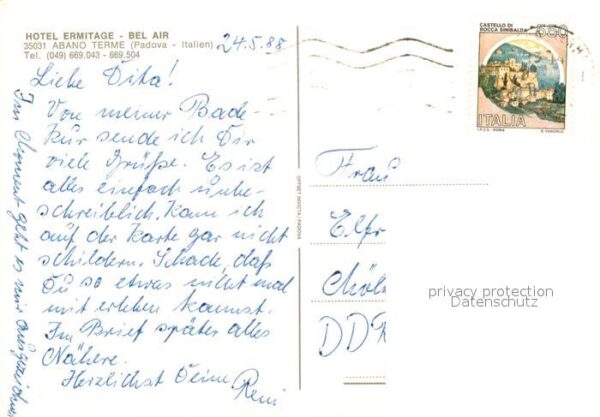 HOTEL ERMITAGE - BEL AIR
35031 ABANO TERME (Padova - Italien)
Tel. (049) 669.043 - 669.504
24.5.88
Liebe Dita!
Von meiner Bade-
kur sende ich Dir
viele Grüße. Es ist
alles einfach unbe-
schreiblich. Kann ich
auf der Karte gar nicht
schildern. Schade, daß
Du so etwas nicht mal
mit erleben kannst.
Im Brief später alles
Nähere.
Herzlichst Deine Reni
Im Moment geht es mir ausgezeichnet
OFFSET INVICTA - PADOVA
CASTELLO DI
ROCCA SINIBALDA
ITALIA
I.P.Z.S. ROMA
Frau
Elfr
DDR
privacy protection
Datenschutz